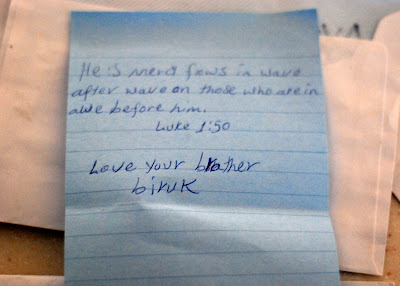 He is mercy fwws in wave
after wave on those who are in
awe before him.
Luke 1:50
Love your brather
biruk